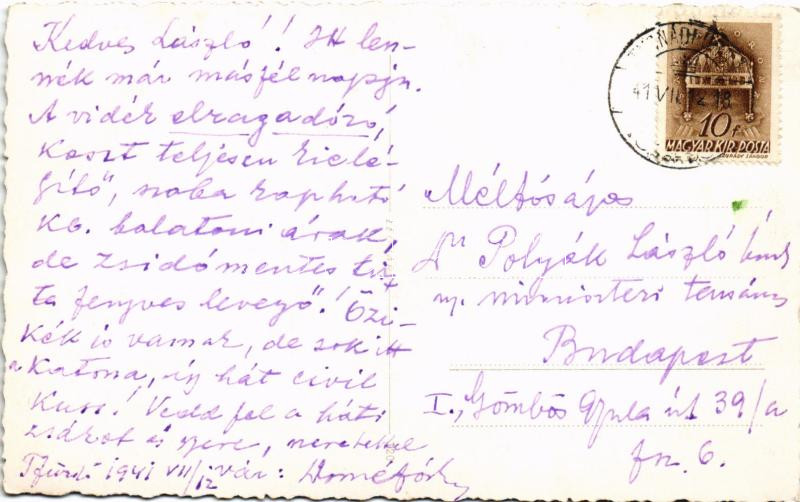 Kedves László! Itt len-
nék már másfél napja.
A vidék elragadózó,
Koszt teljesen kielé-
gítő, szoba kapható
kb. balatoni árak,
de zsidómentes tisz-
ta fenyves levegő! Őzi-
kék is vannak, de sok itt
a katona, így hát civil
kuss! Vedd fel a háti
zsákot és gyere, szeretettel
Tfüred 1941 VII/12 vár:
41 VII. 12 18
KORONA
10f
MAGYAR KIR. POSTA
Méltóságos
Dr Polyák László
m. miniszteri
Budapest
I., Gömbös Gyula út 39/a
fsz. 6.